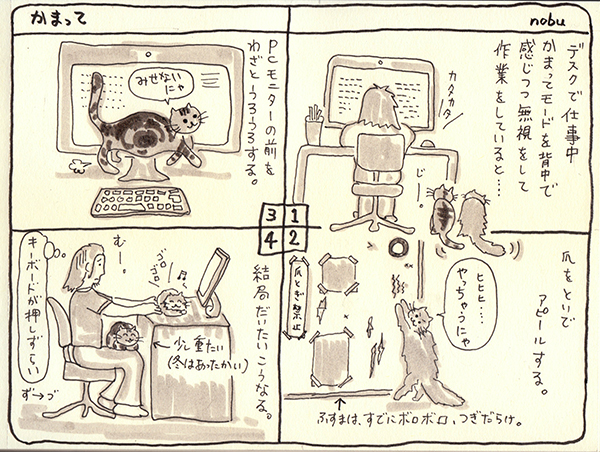 かまって
nobu
デスクで仕事中
かまってモードを背中で
感じつつ無視をして
作業をしていると…
カタカタ
じー。
1
2
3
4
爪をといで
アピールする。
ヒヒヒ….
やっちゃうにゃ
爪とぎ禁止
ふすまは、すでにボロボロ、つぎだらけ。
PCモニターの前を
わざとうろうろする。
みせない
にゃ
結局だいたいこうなる。
むー。
ゴロ
ゴロ
キーボードが押しずらい
ず→づ
少し重たい
(冬はあったかい)